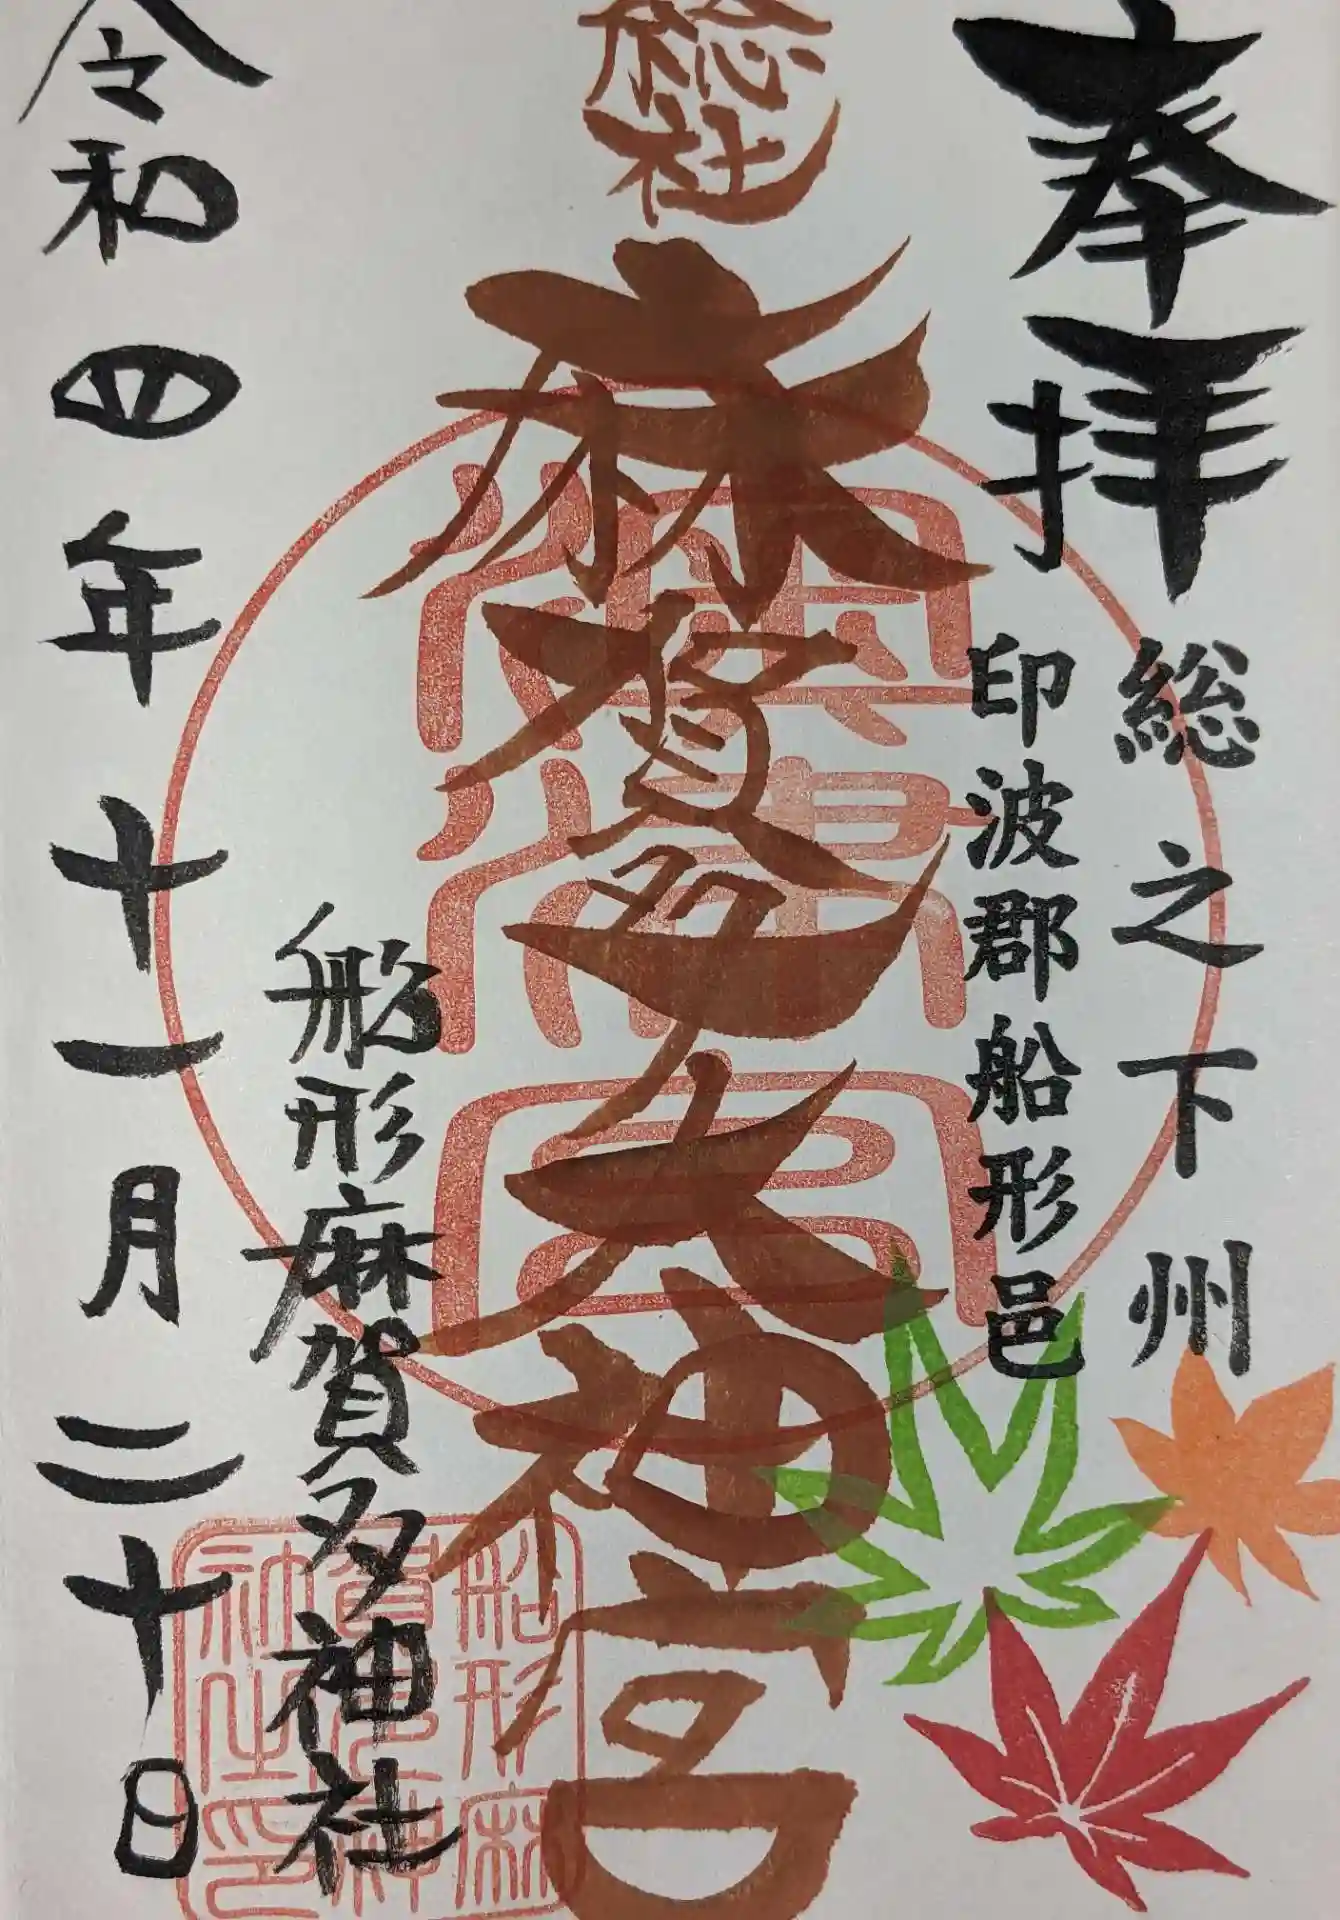 奉拝
総之下州
印波郡船形邑
総社
麻賀多大神宮
船形麻賀多神社
令和四年十一月二十日
船形麻
賀多神
社之印